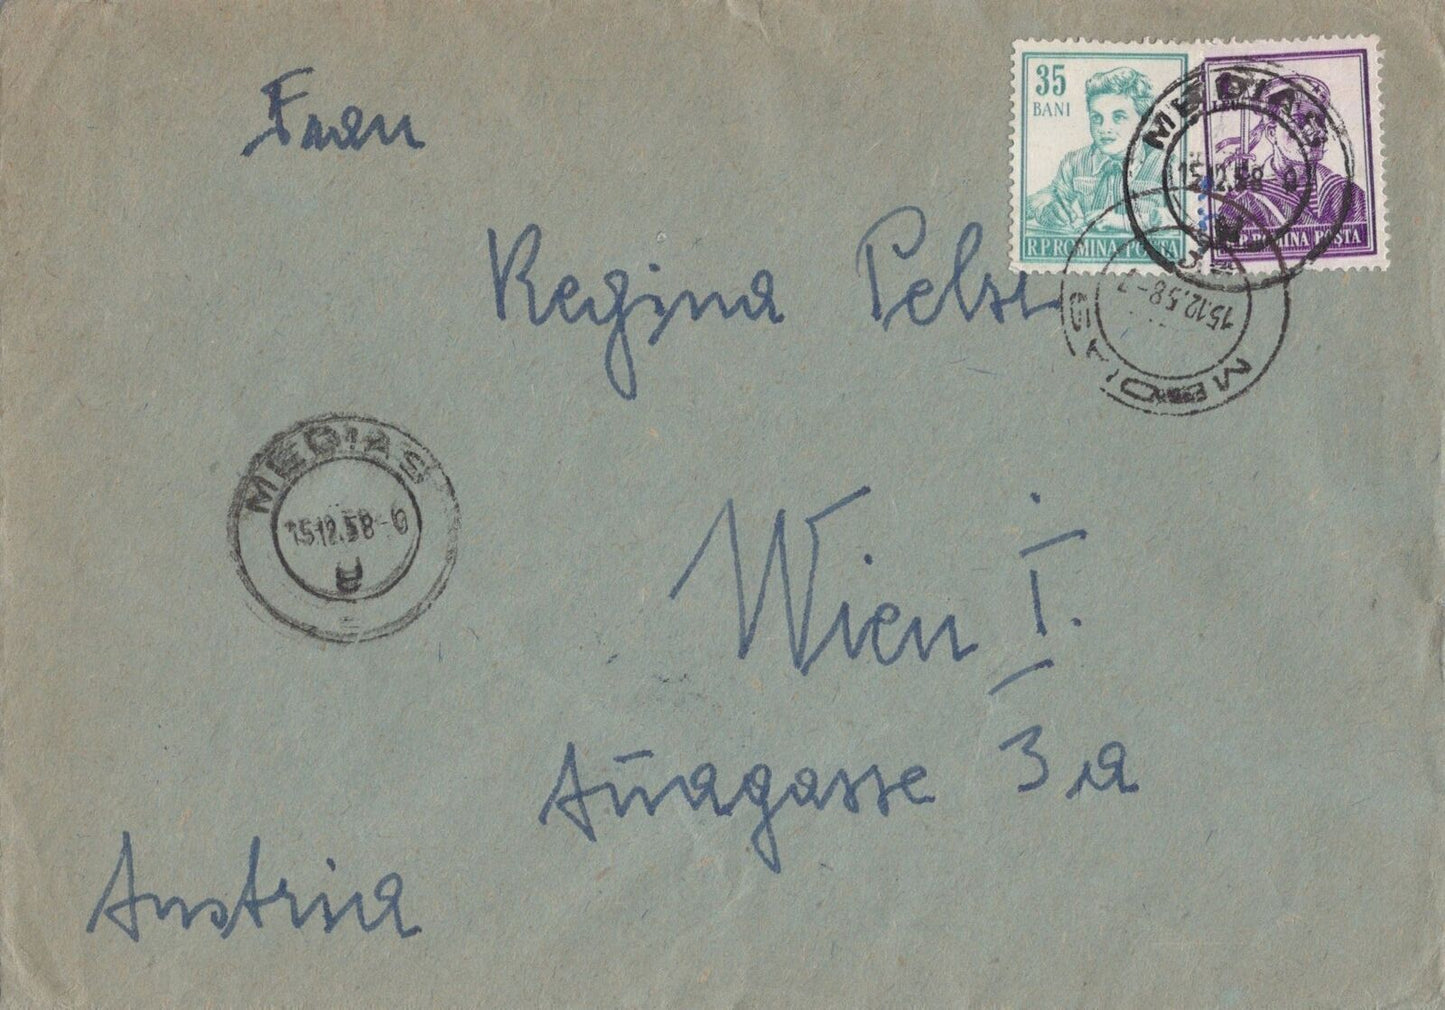 Frau
35
BANI
R.P.ROMINA POSTA
LEU
R.P.ROMINA POSTA
MEDIAS
15.12.58-0
Regina
15.12.58-7
MEDIAS
MEDIAS
15.12.58-0
Wien I.
Añagasse 3a
Austria